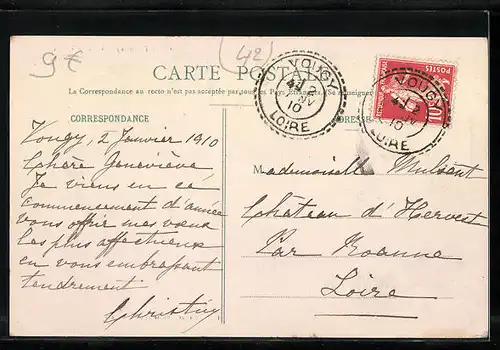 9€
(42)
CARTE POSTALE
La Correspondance au recto n'est pas acceptée par tous les Pays Étrangers (Se renseigner
CORRESPONDANCE
ADRESSE
VOUGY
2
10
LOIRE
VOUGY
2
10
LOIRE
POSTES
10
Vougy, 2 Janvier 1910
Chère Geneviève
Je viens en ce
commencement d'année
vous offrir mes vœux
les plus affectueux
en vous embrassant
tendrement
Mademoiselle Mulsant
Château d'Hervest
Par Roanne
Loire